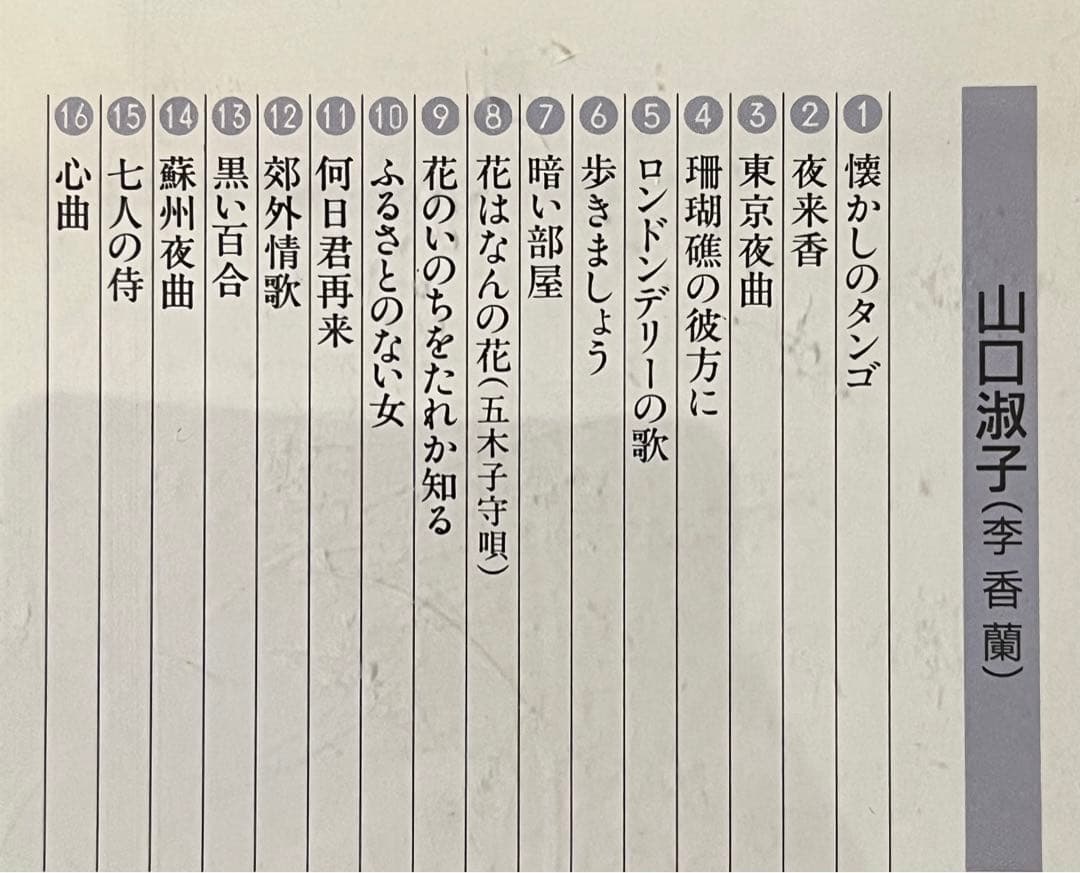 山口淑子(李香蘭)
1 懐かしのタンゴ
2 夜来香
3 東京夜曲
4 珊瑚礁の彼方に
5 ロンドンデリーの歌
6 歩きましょう
7 暗い部屋
8 花はなんの花(五木子守唄)
9 花のいのちをたれか知る
10 ふるさとのない女
11 何日君再来
12 郊外情歌
13 黒い百合
14 蘇州夜曲
15 七人の侍
16 心曲